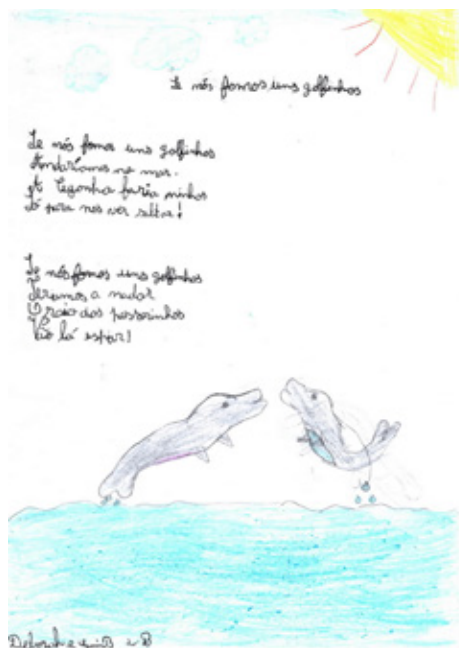 Se nós fomos uns golfinhos
Se nós fomos uns golfinhos
Andaríamos no mar.
A Cegonha faria ninhos
Só para nos ver saltar!
Se nós fomos uns golfinhos
Íeramos a nadar
O raio dos passarinhos
Vão lá espiar!
Deborah e 2 B